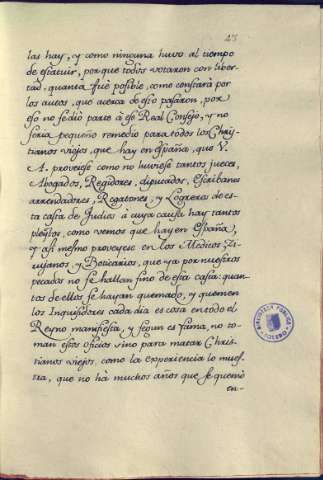 23
las hay, y como ninguna huvo al tiempo
de estatuir, porque todos votaron con liber-
tad, quanta fuè posible, como constarà por
los autos, que acerca de esto pasaron, por
eso no se diò parte à ese Real Consejo, y no
seria pequeño remedio para todos los Chris-
tianos viejos, que hay en España, que V.
A. proveyese como no huviese tantos jueces,
Abogados, Regidores, diputados, Escribanos
arrendadores, Regatones, y Logreros de es-
ta casta de Judios à cuya causa hay tantos
pleytos, como vemos que hay en España,
y asi mesmo proveyese en los Medicos Zi-
rujanos, y Boticarios, que ya por nuestros
pecados no se hallan sino de esta casta: quan-
tas de ellos se hayan quemado, y quemen
los Inquisidores cada dia es cosa en todo el
Reyno manifiesta, y segun es fama, no to-
man estos oficios sino para matar Christ-
tianos viejos. como la experiencia lo mues-
tra, que no hà muchos años que se quemò
en-
BIBLIOTECA PUBLICA
TOLEDO